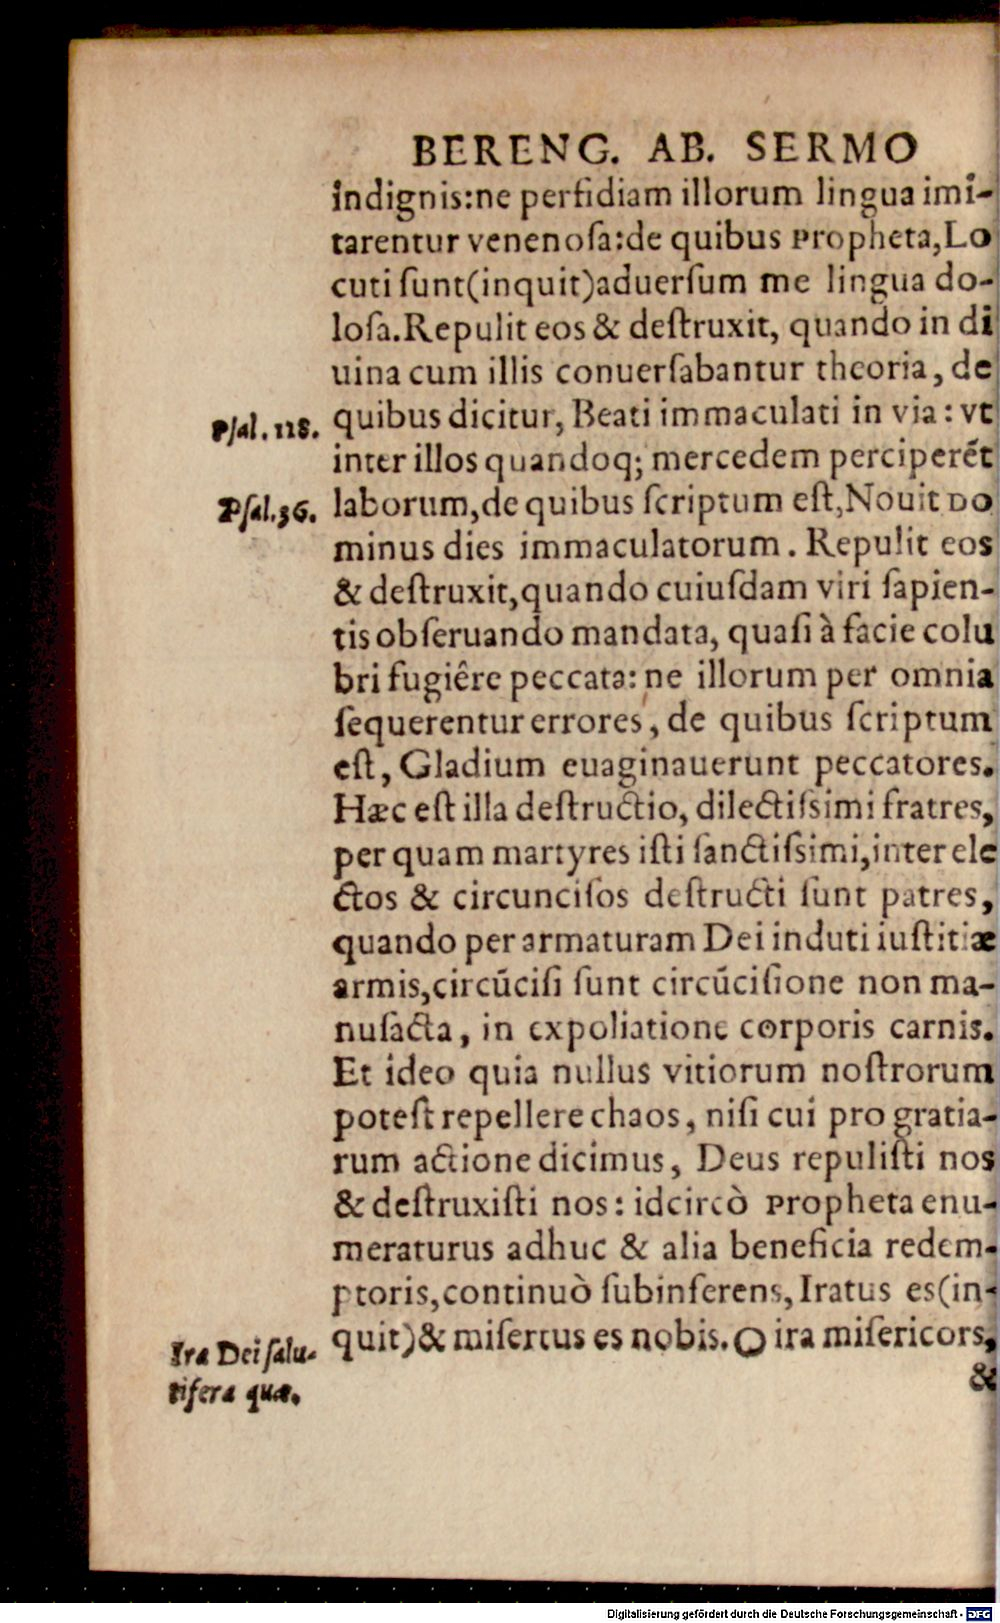 BERENG. AB. SERMO
indignis:ne perfidiam illorum lingua imi-
tarentur venenosa:de quibus Propheta,Lo
cuti sunt(inquit)aduersum me lingua do-
losa.Repulit eos & destruxit, quando in di
uina cum illis conuersabantur theoria, de
Psal. 118.
quibus dicitur, Beati immaculati in via: vt
inter illos quandoq; mercedem perciperēt
Psal.36.
laborum,de quibus scriptum est,Nouit Do
minus dies immaculatorum. Repulit eos
& destruxit,quando cuiusdam viri sapien-
tis obseruando mandata, quasi à facie colu
bri fugiêre peccata: ne illorum per omnia
sequerentur errores, de quibus scriptum
est, Gladium euaginauerunt peccatores.
Hæc est illa destructio, dilectissimi fratres,
per quam martyres isti sanctissimi,inter ele
ctos & circuncisos destructi sunt patres,
quando per armaturam Dei induti iustitiæ
armis,circūcisi sunt circūcisione non ma-
nufacta, in expoliatione corporis carnis.
Et ideo quia nullus vitiorum nostrorum
potest repellere chaos, nisi cui pro gratia-
rum actione dicimus, Deus repulisti nos
& destruxisti nos: idcircò Propheta enu-
meraturus adhuc & alia beneficia redem-
ptoris,continuò subinferens, Iratus es(in-
quit)& misertus es nobis. O ira misericors,
Ira Dei salu-
tifera quæ.
&
Digitalisierung gefördert durch die Deutsche Forschungsgemeinschaft - DFG